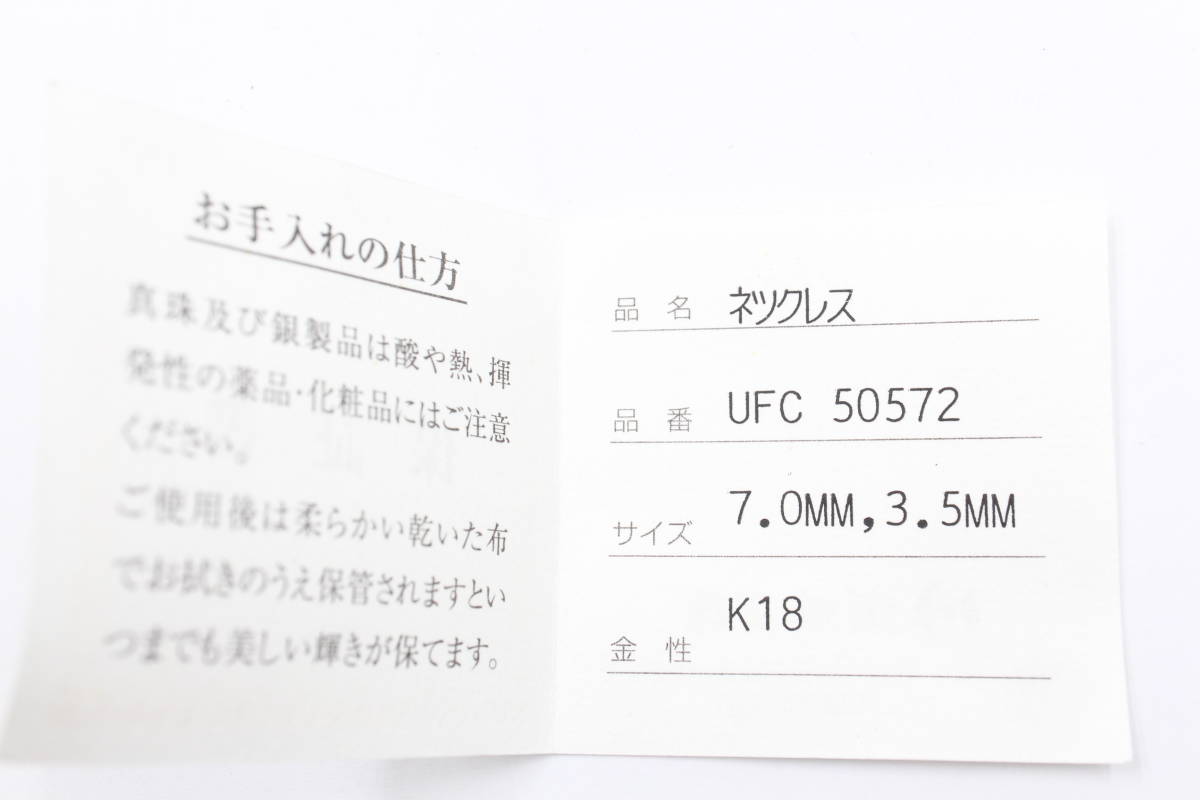 お手入れの仕方
真珠及び銀製品は酸や熱、揮
発性の薬品・化粧品にはご注意
ください。
ご使用後は柔らかい乾いた布
でお拭きのうえ保管されますとい
つまでも美しい輝きが保てます。
品 名 ネツクレス
品 番 UFC 50572
サイズ 7.0MM,3.5MM
金 性 K18